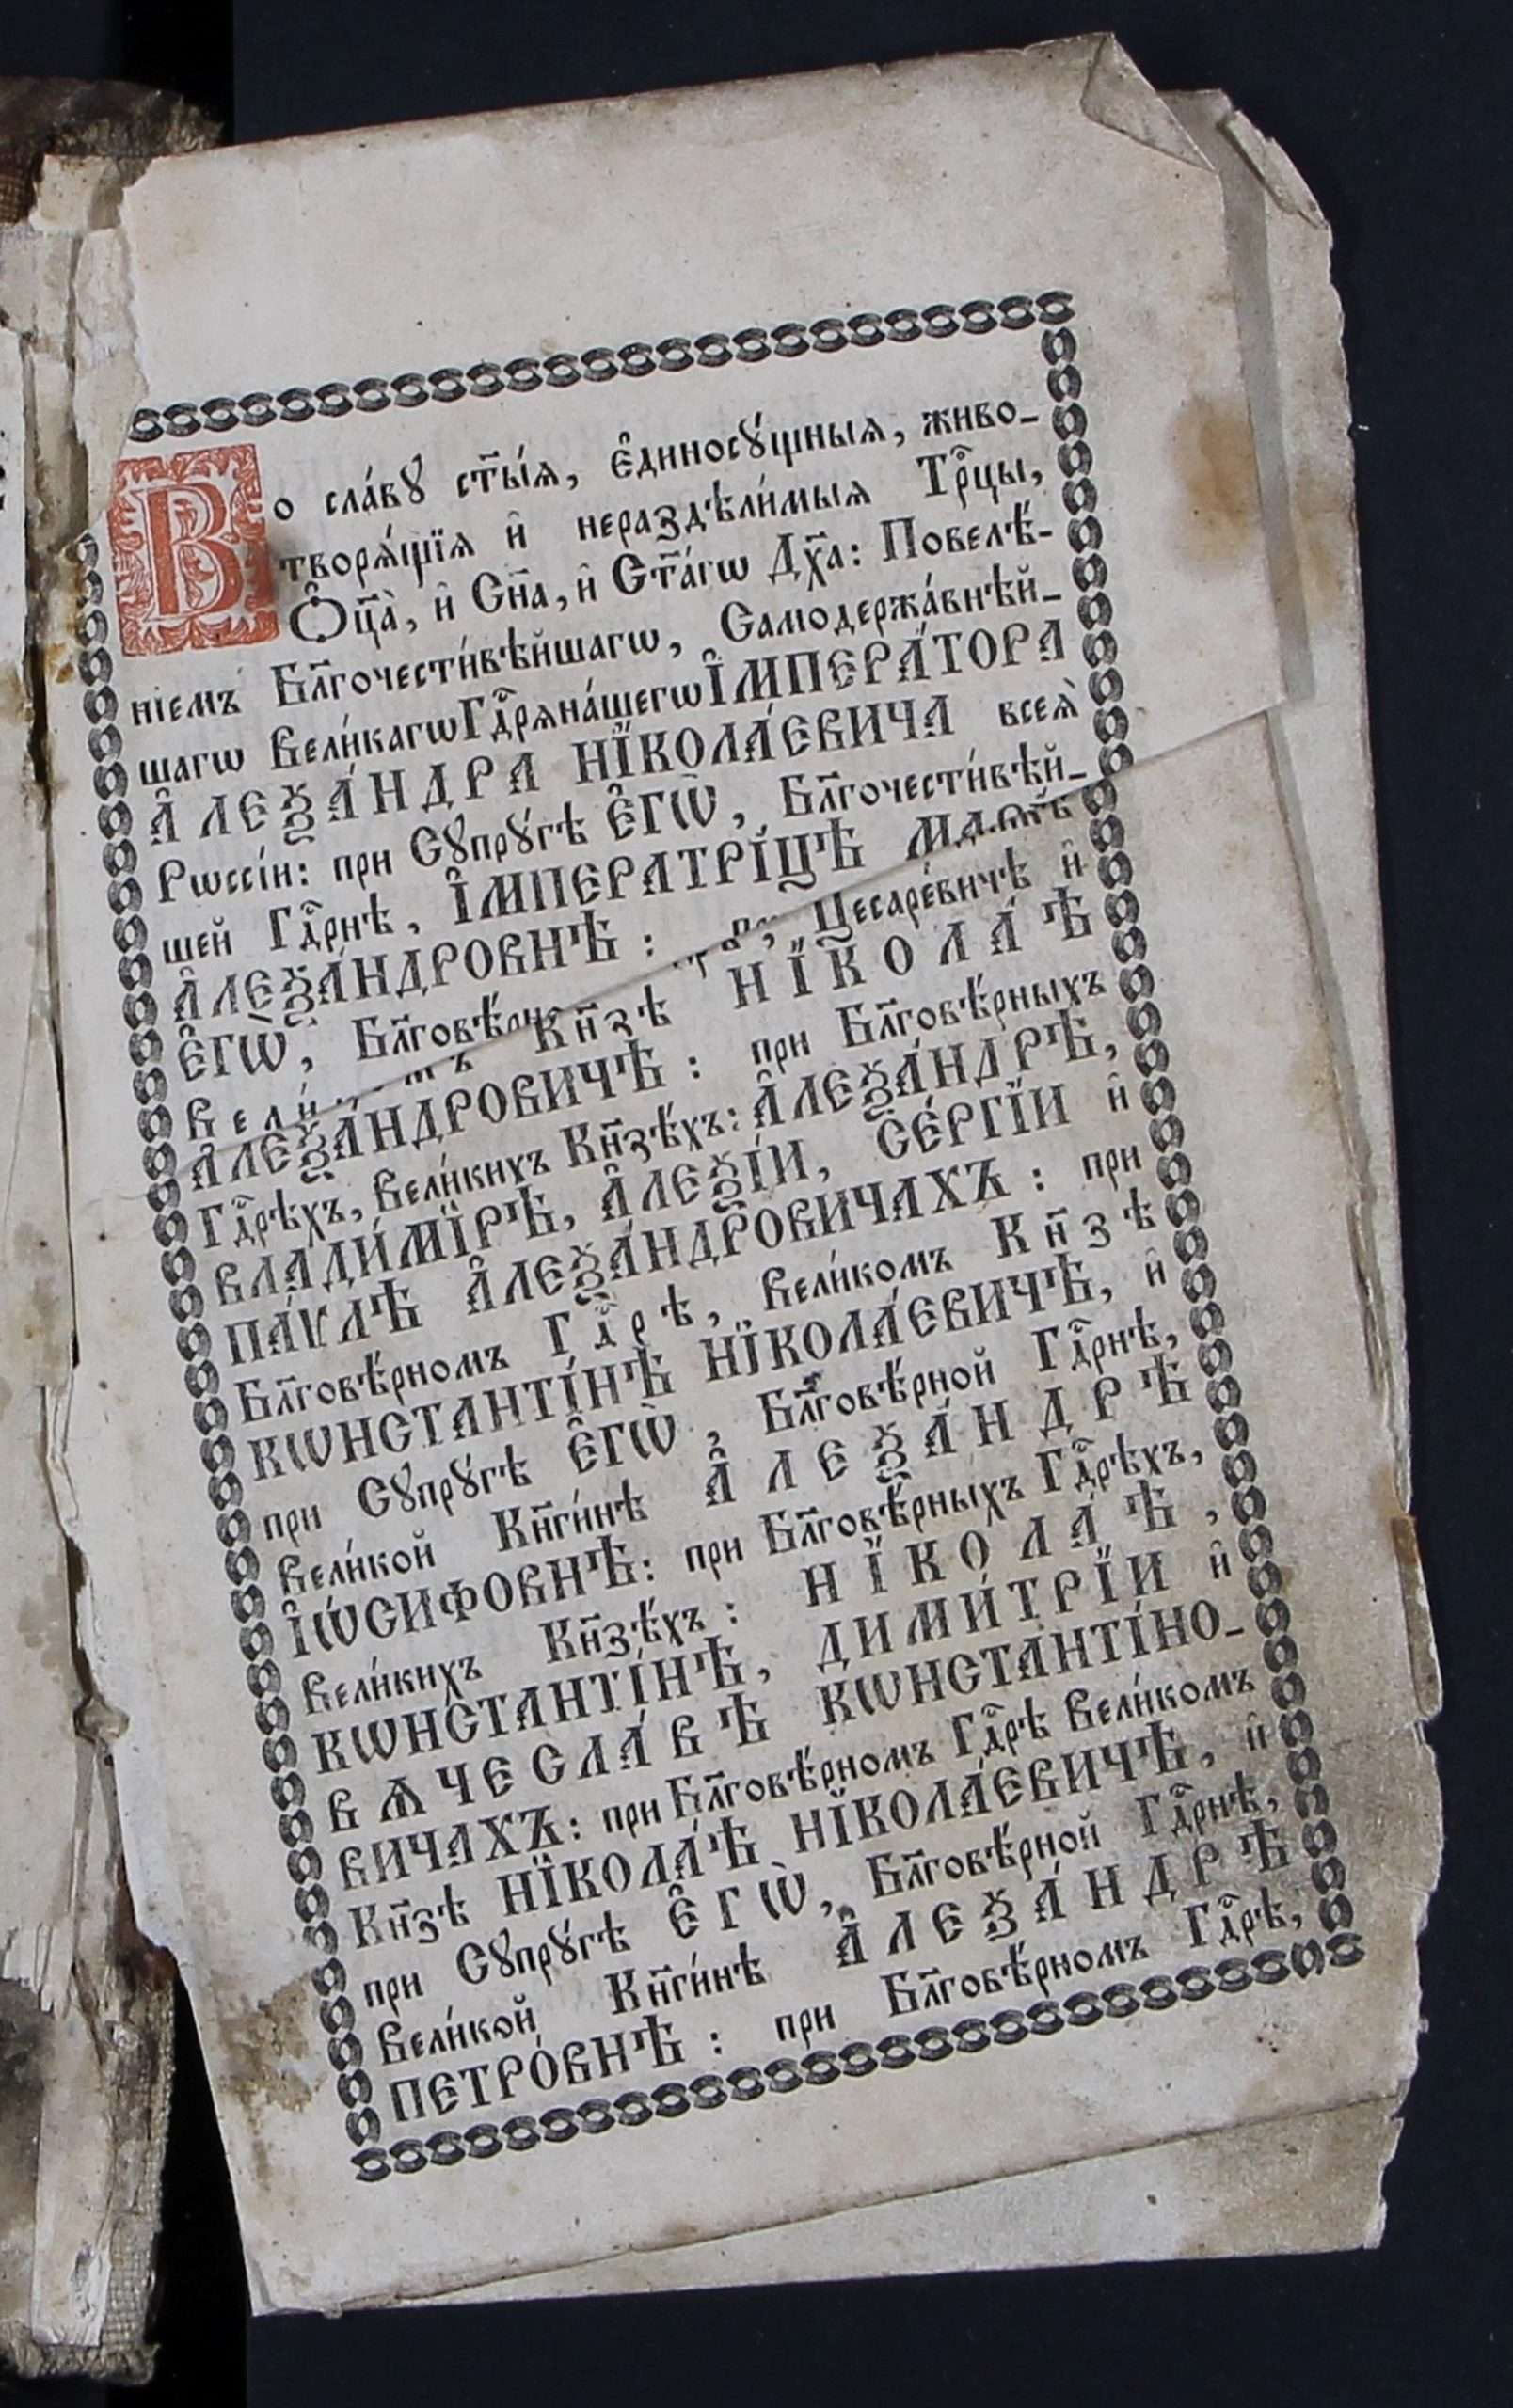 Во сла́вꙋ ст҃ы́ѧ, є҆диносꙋ́щныѧ, живо-
творѧ́щїѧ и҆ нераздѣли́мыѧ Трⷪ҇цы,
Ѻ҆ц҃а̀, и҆ Сн҃а, и҆ Ст҃а́гѡ Дх҃а: Повелѣ́-
нїемъ Бл҃гочести́вѣйшагѡ, Самодержа́внѣй-
шагѡ Вели́кагѡ Гдⷭ҇рѧ на́шегѡ І҆МПЕРА́ТОРА
А҆ЛЕѮА́НДРА НЇКОЛА́ЕВИЧА всеѧ̀
Рѡссі́и: при Сꙋпрꙋ́гѣ Є҆ГѠ̀, Бл҃гочести́вѣй-
шей Гдⷭ҇рнѣ, І҆МПЕРАТРІ́ЦѢ
А҆ЛЕѮА́НДРОВНѢ: Цесаре́вичѣ и҆
Є҆ГѠ̀, Кн҃зѣ НЇКОЛА́Ѣ
А҆ЛЕѮА́НДРОВИЧѢ: при Бл҃говѣ́рныхъ
Гдⷭ҇рѣхъ, Вели́кихъ Кн҃зѣ́хъ: А҆ЛЕѮА́НДРѢ,
ВЛАДИ́МЇРѢ, А҆ЛЕѮІ́И, СЕ́РГЇИ и҆
ПА́ѴЛѢ А҆ЛЕѮА́НДРОВИЧАХЪ: при
Бл҃говѣ́рномъ Гдⷭ҇рѣ, Вели́комъ Кн҃зѣ
КѠНСТАНТІ́НѢ НЇКОЛА́ЕВИЧѢ, и҆
при Сꙋпрꙋ́гѣ Є҆ГѠ̀, Бл҃говѣ́рной Гдⷭ҇рнѣ,
Вели́кой Кн҃ги́нѣ А҆ЛЕѮА́НДРѢ
І҆Ѡ́СИФОВНѢ: при Бл҃говѣ́рныхъ Гдⷭ҇рѣхъ,
Вели́кихъ Кн҃зѣ́хъ: НЇКОЛА́Ѣ,
КѠНСТАНТІ́НѢ, ДИМИ́ТРЇИ и҆
ВѦЧЕСЛА́ВѢ КѠНСТАНТІ́НО-
ВИЧАХЪ: при Бл҃говѣ́рномъ Гдⷭ҇рѣ Вели́комъ
Кн҃зѣ НЇКОЛА́Ѣ НЇКОЛА́ЕВИЧѢ, и҆
при Сꙋпрꙋ́гѣ Є҆ГѠ̀, Бл҃говѣ́рной Гдⷭ҇рнѣ,
Вели́кой Кн҃ги́нѣ А҆ЛЕѮА́НДРѢ
ПЕТРО́ВНѢ: при Бл҃говѣ́рномъ Гдⷭ҇рѣ,